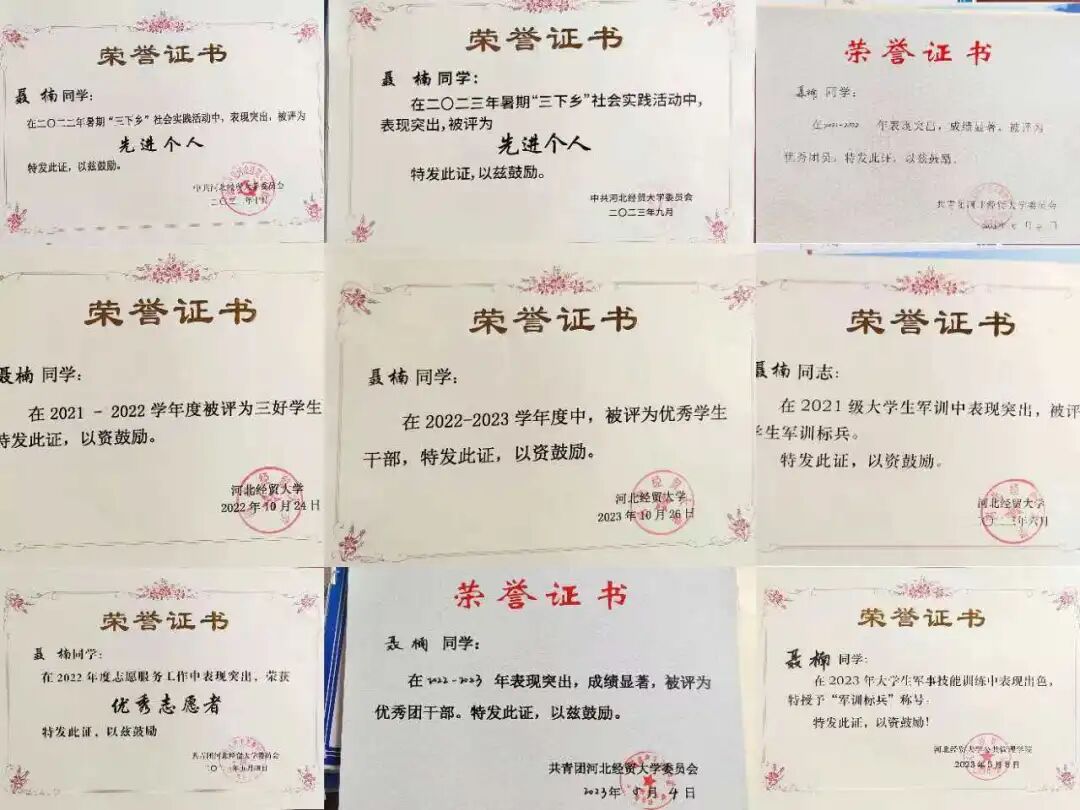 荣誉证书
聂 楠 同学:
在二〇二二年暑期“三下乡”社会实践活动中,表现突出,被评为
先进个人
特发此证,以兹鼓励。
中共河北经贸大学委员会
荣誉证书
聂 楠 同学:
在二〇二三年暑期“三下乡”社会实践活动中,
表现突出,被评为
先进个人
特发此证,以兹鼓励。
中共河北经贸大学委员会
二〇二三年九月
荣誉证书
聂楠 同学:
在2021-2022 年表现突出,成绩显著,被评为
优秀团员。特发此证,以兹鼓励。
共青团河北经贸大学委员会
荣誉证书
聂楠 同学:
在 2021 - 2022 学年度被评为三好学生
特发此证,以资鼓励。
河北经贸大学
2022 年 10 月 24 日
荣誉证书
聂楠 同学:
在 2022-2023 学年度中,被评为优秀学生
干部,特发此证,以资鼓励。
河北经贸大学
2023 年 10 月 26 日
荣誉证书
聂楠 同志:
在 2021 级大学生军训中表现突出,被评
学生军训标兵。
特发此证,以资鼓励。
河北经贸大学
荣誉证书
聂 楠同学:
在 2022 年度志愿服务工作中表现突出,荣获
优秀志愿者
特发此证,以兹鼓励
共青团河北经贸大学委员会
荣誉证书
聂 楠 同学:
在2022-2023 年表现突出,成绩显著,被评为
优秀团干部。特发此证,以兹鼓励。
共青团河北经贸大学委员会
荣誉证书
聂楠 同学:
在 2023 年大学生军事技能训练中表现出色,
特授予“军训标兵”称号。
特发此证,以资鼓励!
河北经贸大学公共管理学院